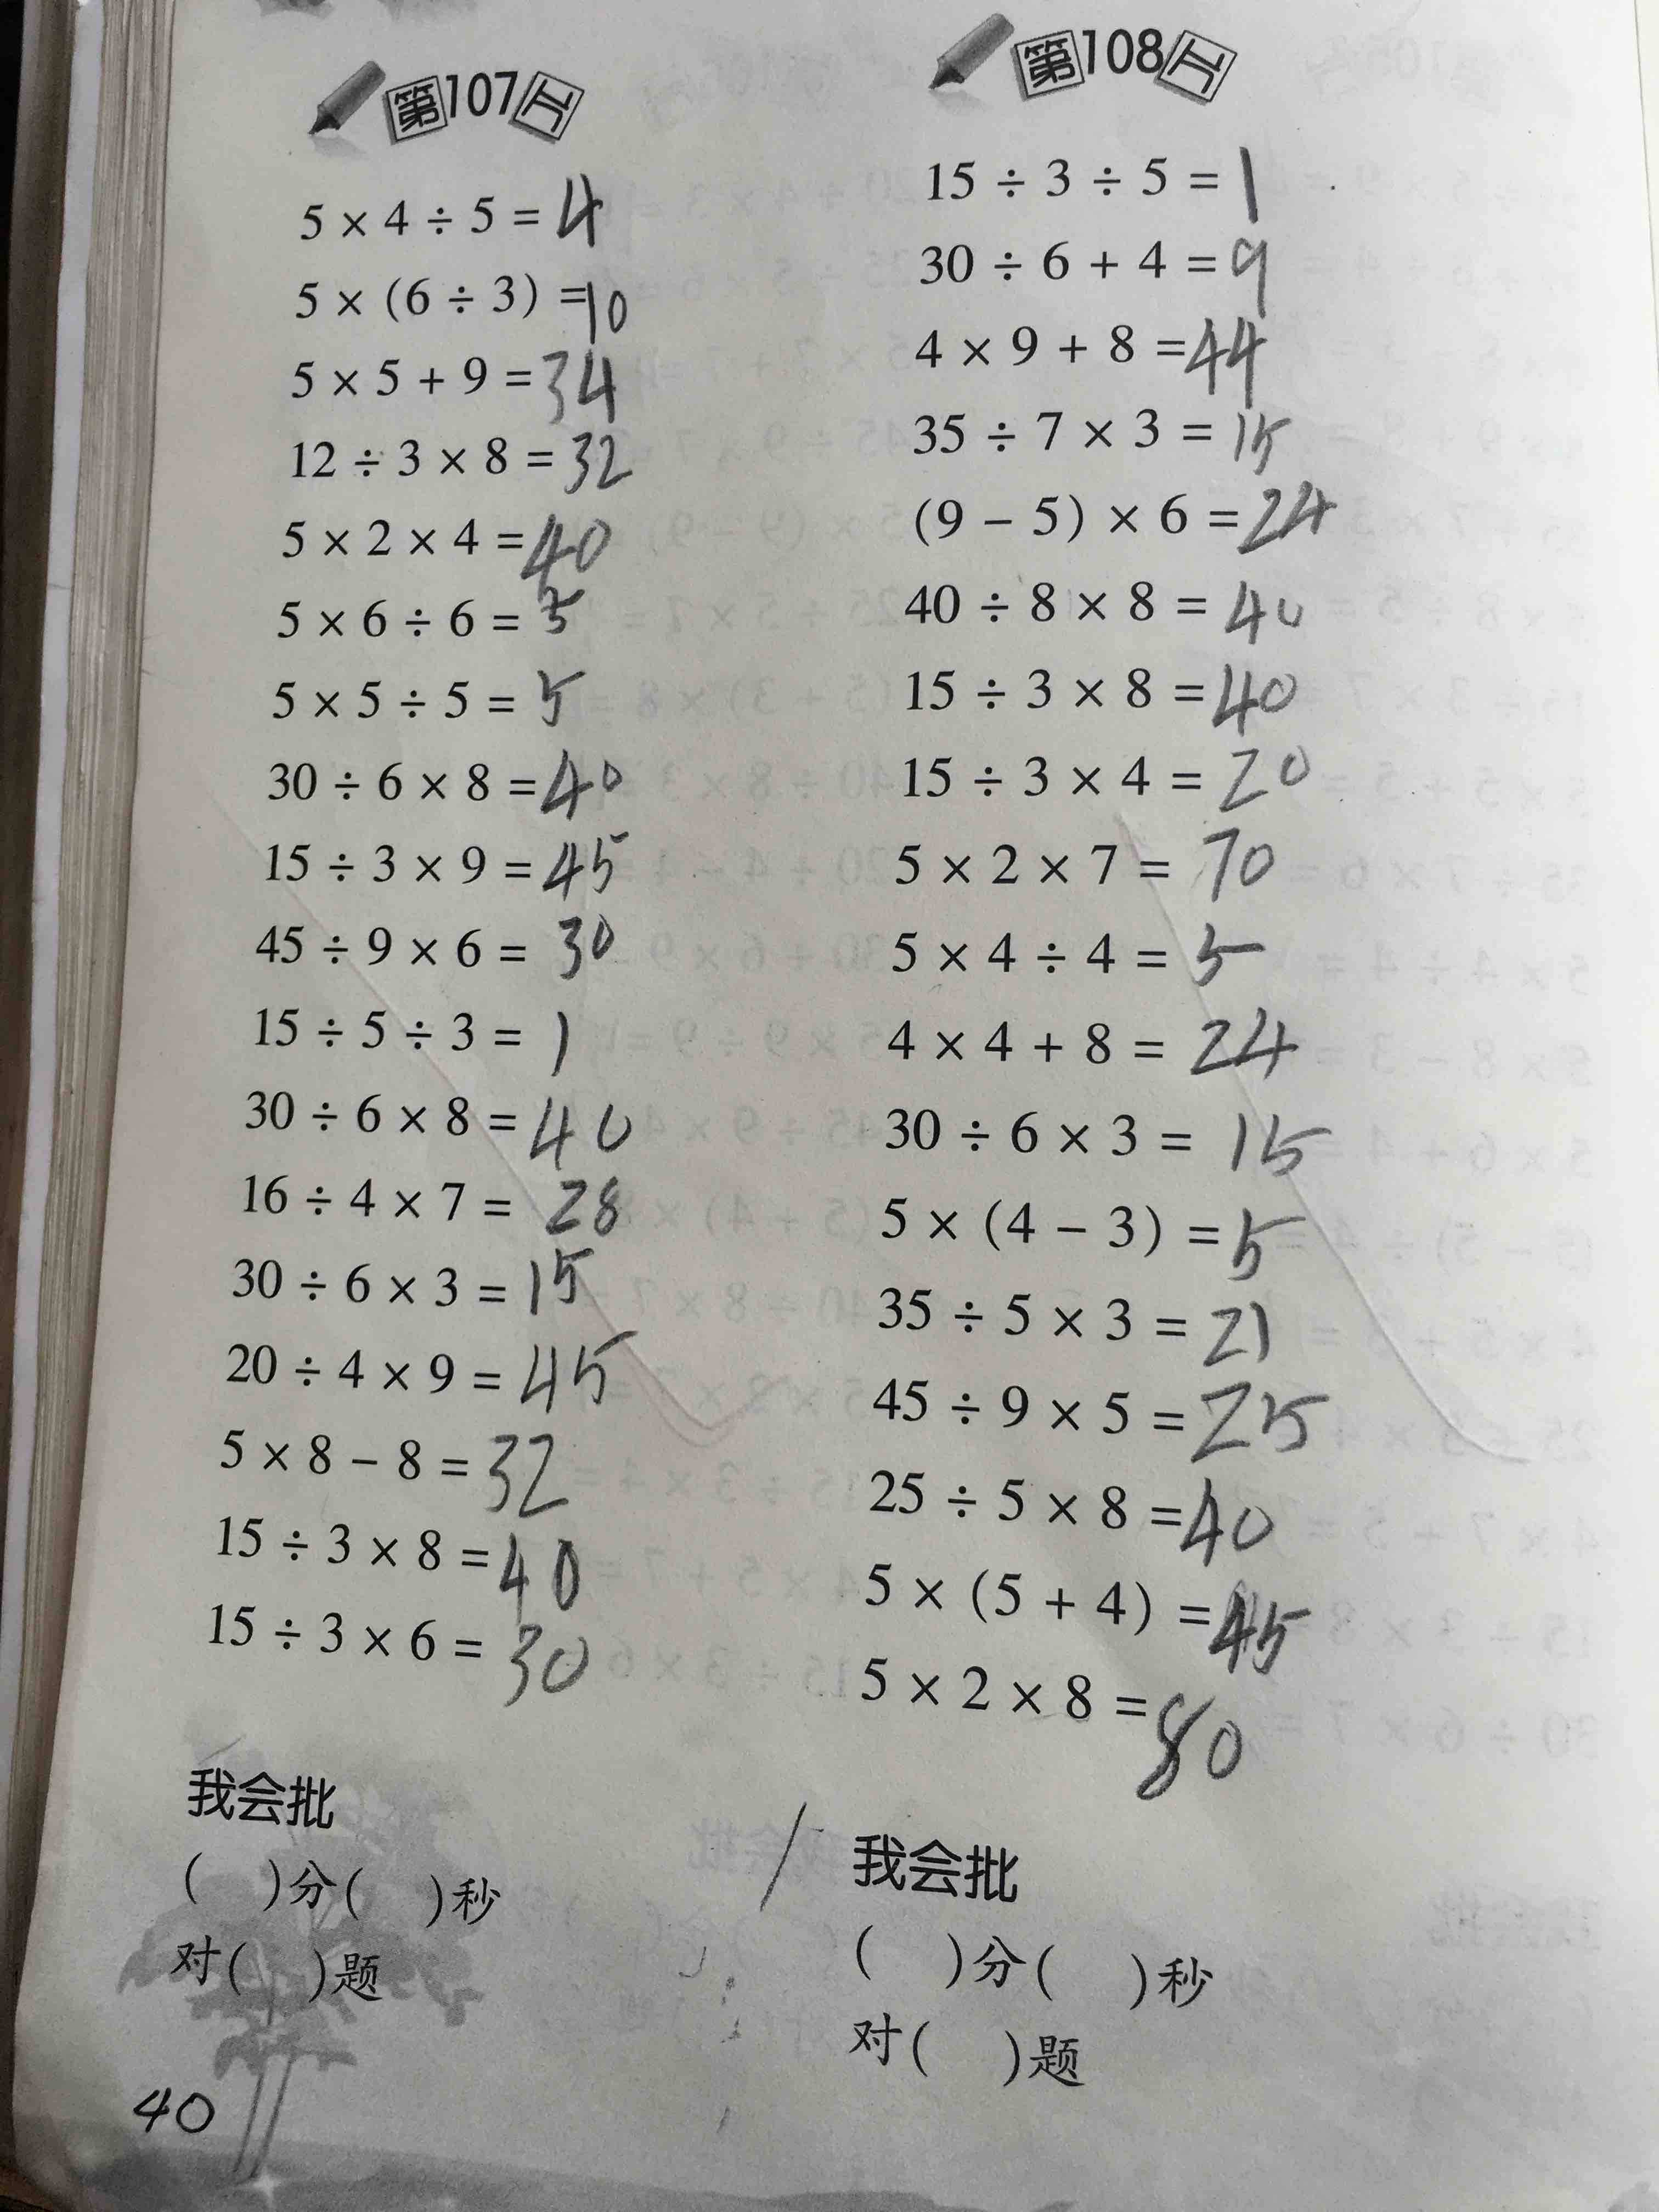 第107工
5 × 4 ÷ 5 = 4
5 × (6 ÷ 3) = 10
5 × 5 + 9 = 34
12 ÷ 3 × 8 = 32
5 × 2 × 4 = 40
5 × 6 ÷ 6 = 5
5 × 5 ÷ 5 = 5
30 ÷ 6 × 8 = 40
15 ÷ 3 × 9 = 45
45 ÷ 9 × 6 = 30
15 ÷ 5 ÷ 3 = 1
30 ÷ 6 × 8 = 40
16 ÷ 4 × 7 = 28
30 ÷ 6 × 3 = 15
20 ÷ 4 × 9 = 45
5 × 8 − 8 = 32
15 ÷ 3 × 8 = 40
15 ÷ 3 × 6 = 30
我会批
( )分( )秒
对( )题
40
第108工
15 ÷ 3 ÷ 5 = 1
30 ÷ 6 + 4 = 9
4 × 9 + 8 = 44
35 ÷ 7 × 3 = 15
(9 − 5) × 6 = 24
40 ÷ 8 × 8 = 40
15 ÷ 3 × 8 = 40
15 ÷ 3 × 4 = 20
5 × 2 × 7 = 70
5 × 4 ÷ 4 = 5
4 × 4 + 8 = 24
30 ÷ 6 × 3 = 15
5 × (4 − 3) = 5
35 ÷ 5 × 3 = 21
45 ÷ 9 × 5 = 25
25 ÷ 5 × 8 = 40
5 × (5 + 4) = 45
5 × 2 × 8 = 80
我会批
( )分( )秒
对( )题